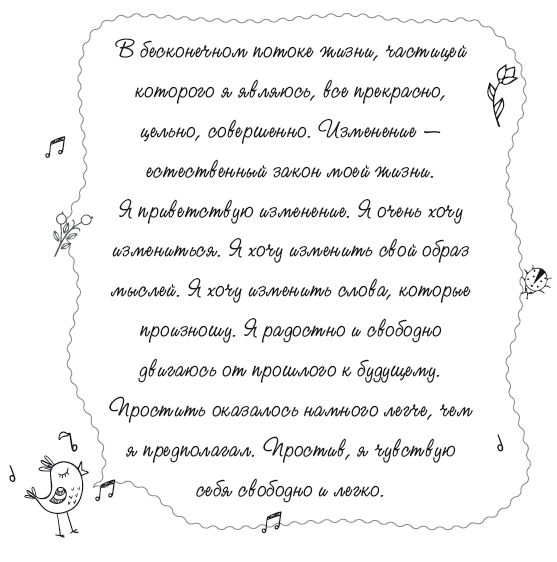 В бесконечном потоке жизни, частицей
которого я являюсь, все прекрасно,
цельно, совершенно. Изменение —
естественный закон моей жизни.
Я приветствую изменение. Я очень хочу
измениться. Я хочу изменить свой образ
мыслей. Я хочу изменить слова, которые
произношу. Я радостно и свободно
двигаюсь от прошлого к будущему.
Простить оказалось намного легче, чем
я предполагал. Простив, я чувствую
себя свободно и легко.